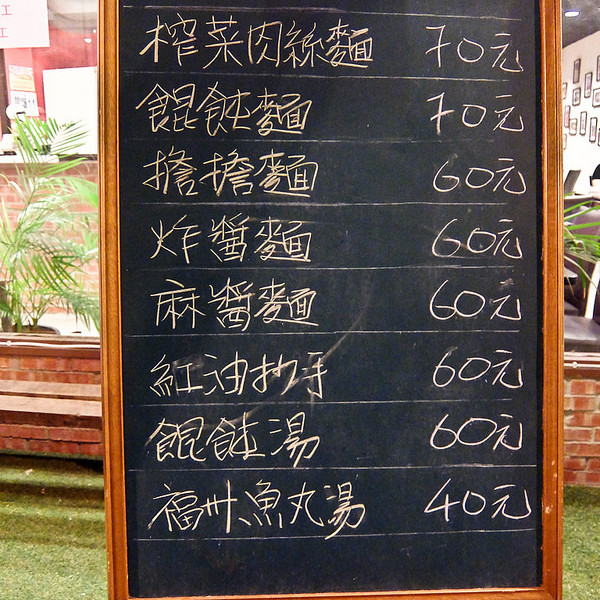 榨菜肉絲麵 70元
餛飩麵 70元
擔擔麵 60元
炸醬麵 60元
麻醬麵 60元
紅油抄手 60元
餛飩湯 60元
福州魚丸湯 40元
工
工